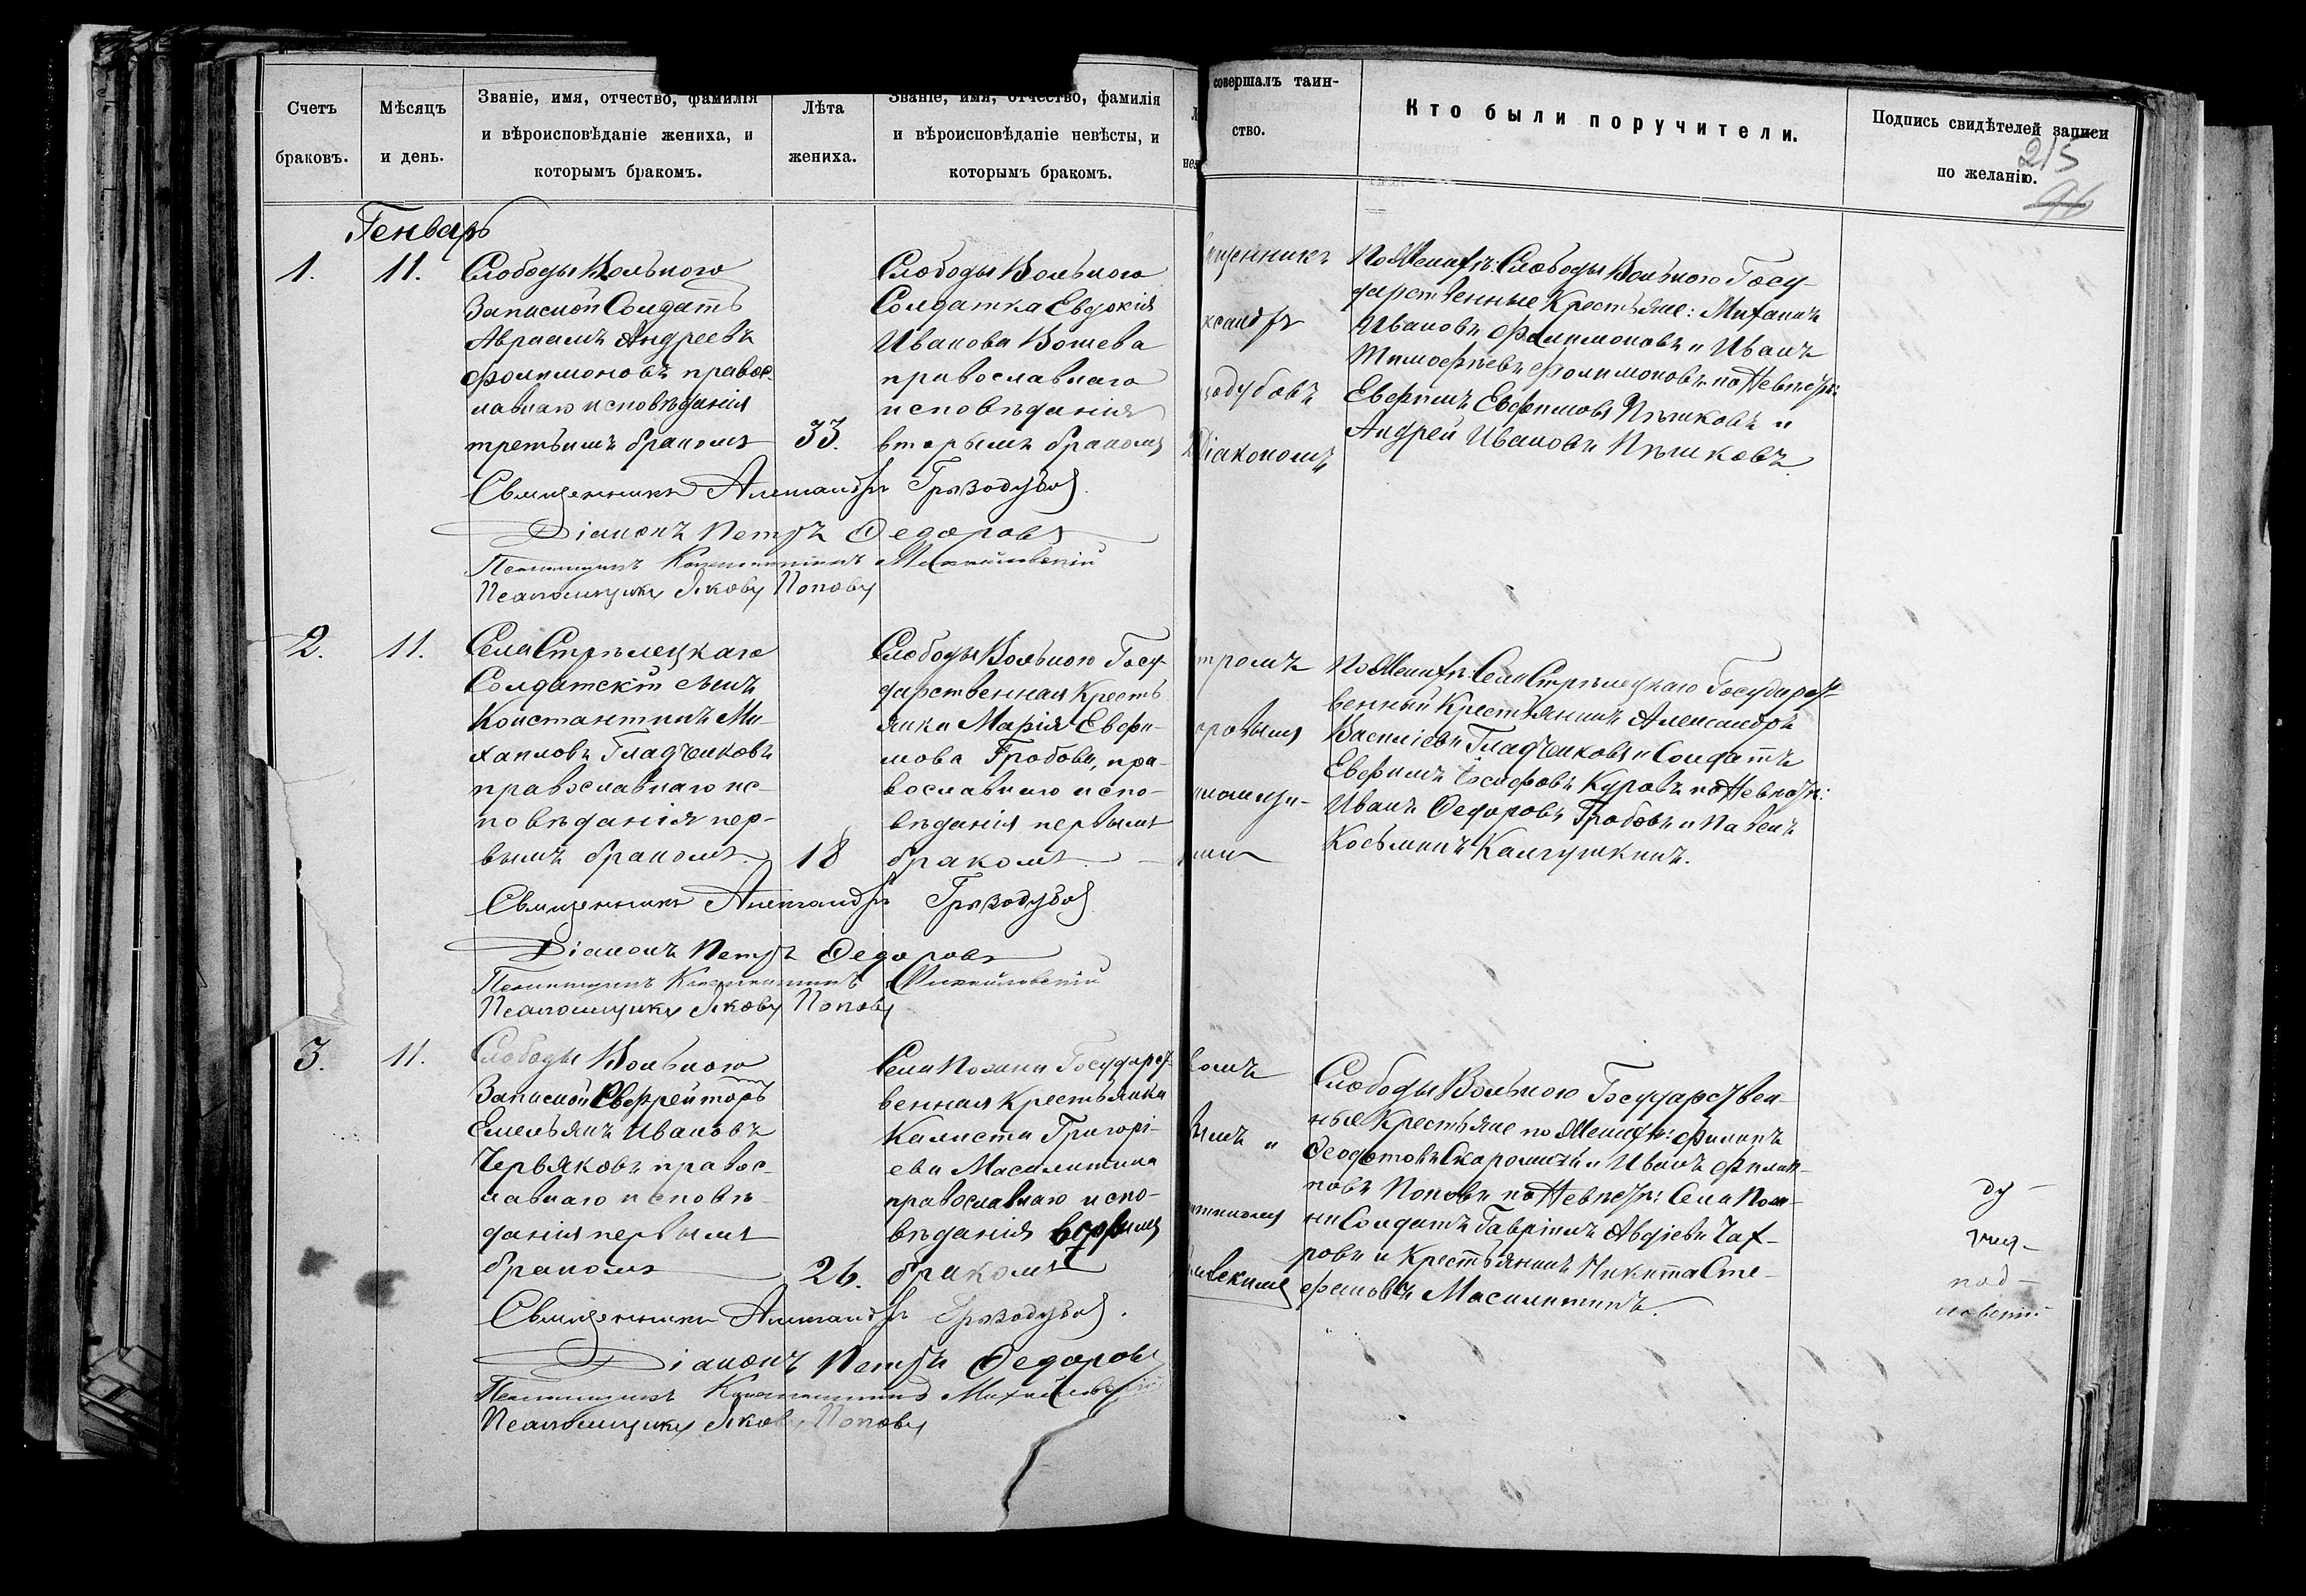 Счетъ
браковъ.
Мѣсяцъ
и день.
Званіе, имя, отчество, фамилія
и вѣроисповѣданіе жениха, и
которымъ бракомъ.
Лѣта
жениха.
Званіе, имя, отчество, фамилія
и вѣроисповѣданіе невѣсты, и
которымъ бракомъ.
совершалъ таин-
ство.
Кто были поручители.
Подпись свидѣтелей записи
по желанію.
215
Генварь
1.
11.
Слободы Вольного
Запасной Солдатъ
Авраамъ Андреевъ
Филимоновъ правос-
лавнаго исповѣданія
третьимъ бракомъ
33.
Слободы Вольного
Солдатка Евдокія
Иванова
православнаго
исповѣданія
вторымъ бракомъ
По Женихѣ: Слободы Вольного Госу-
дарственные Крестьяне: Михаилъ
Ивановъ Филимоновъ и Иванъ
Тимофѣевъ Филимоновъ по Невѣстѣ:
Евфимъ Евфимовъ Пѣшковъ и
Андрей Ивановъ Пѣшковъ.
Діакономъ
Священникъ Александръ Гризодубовъ
Діаконъ Петръ Федоровъ
Псаломщикъ Константинъ Михайловскій
Псаломщикъ Яковъ Поповъ
2.
11.
Села Стрѣлецкаго
Солдатскій сынъ
Константинъ Ми-
хаиловъ Гладченковъ
православнаго ис-
повѣданія пер-
вымъ бракомъ.
18
Слободы Вольного Госу-
дарственная Кресть-
янка Марія Евфи-
мова Гробова, пра-
вославнаго испо-
вѣданія первымъ
бракомъ.
По Женихѣ: Села Стрѣлецкаго Государст-
венный Крестьянинъ Александръ
Василіевъ Гладченковъ и Солдатъ
Евфимъ Іосифовъ Куровъ по Невѣстѣ:
Иванъ Федоровъ Гробовъ и Павелъ
Косьминъ
Священникъ Александръ Гризодубовъ
Діаконъ Петръ Федоровъ
Псаломщикъ Константинъ Михайловскій
Псаломщикъ Яковъ Поповъ
3.
11.
Слободы Вольного
Запасной Ефрейторъ
Емельянъ Ивановъ
Червяковъ правос-
лавнаго исповѣ-
данія первымъ
бракомъ
26.
Села Поляни Государст-
венная Крестьянка
Калиста Григорі-
ева Масалитина
православнаго испо-
вѣданія вторымъ
бракомъ
Слободы Вольного Государствен-
ные Крестьяне по Женихѣ: Филипъ
Феодотовъ и Иванъ Филип-
повъ Поповъ по Невѣстѣ: Села Поля-
ни Солдатъ Гавріилъ Авдіевъ Чах-
ровъ и Крестьянинъ Никита Сте-
фановъ Масалитинъ.
Священникъ Александръ Гризодубовъ.
Діаконъ Петръ Федоровъ
Псаломщикъ Константинъ Михайловскій
Псаломщикъ Яковъ Поповъ